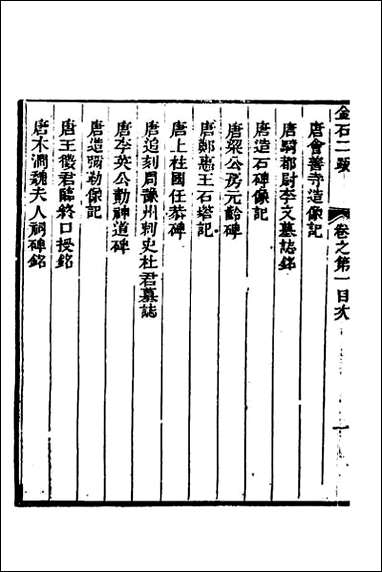 金石二跋　卷之第一目次　一
唐會善寺造像記
唐騎都尉李文墓誌銘
唐造石碑像記
唐梁公房元齡碑
唐鄭惠王石塔記
唐上柱國任恭碑
唐追刻周豫州刺史杜君墓誌
唐李英公勣神道碑
唐造彌勒像記
唐王徵君臨終口授銘
唐木澗魏夫人祠碑銘